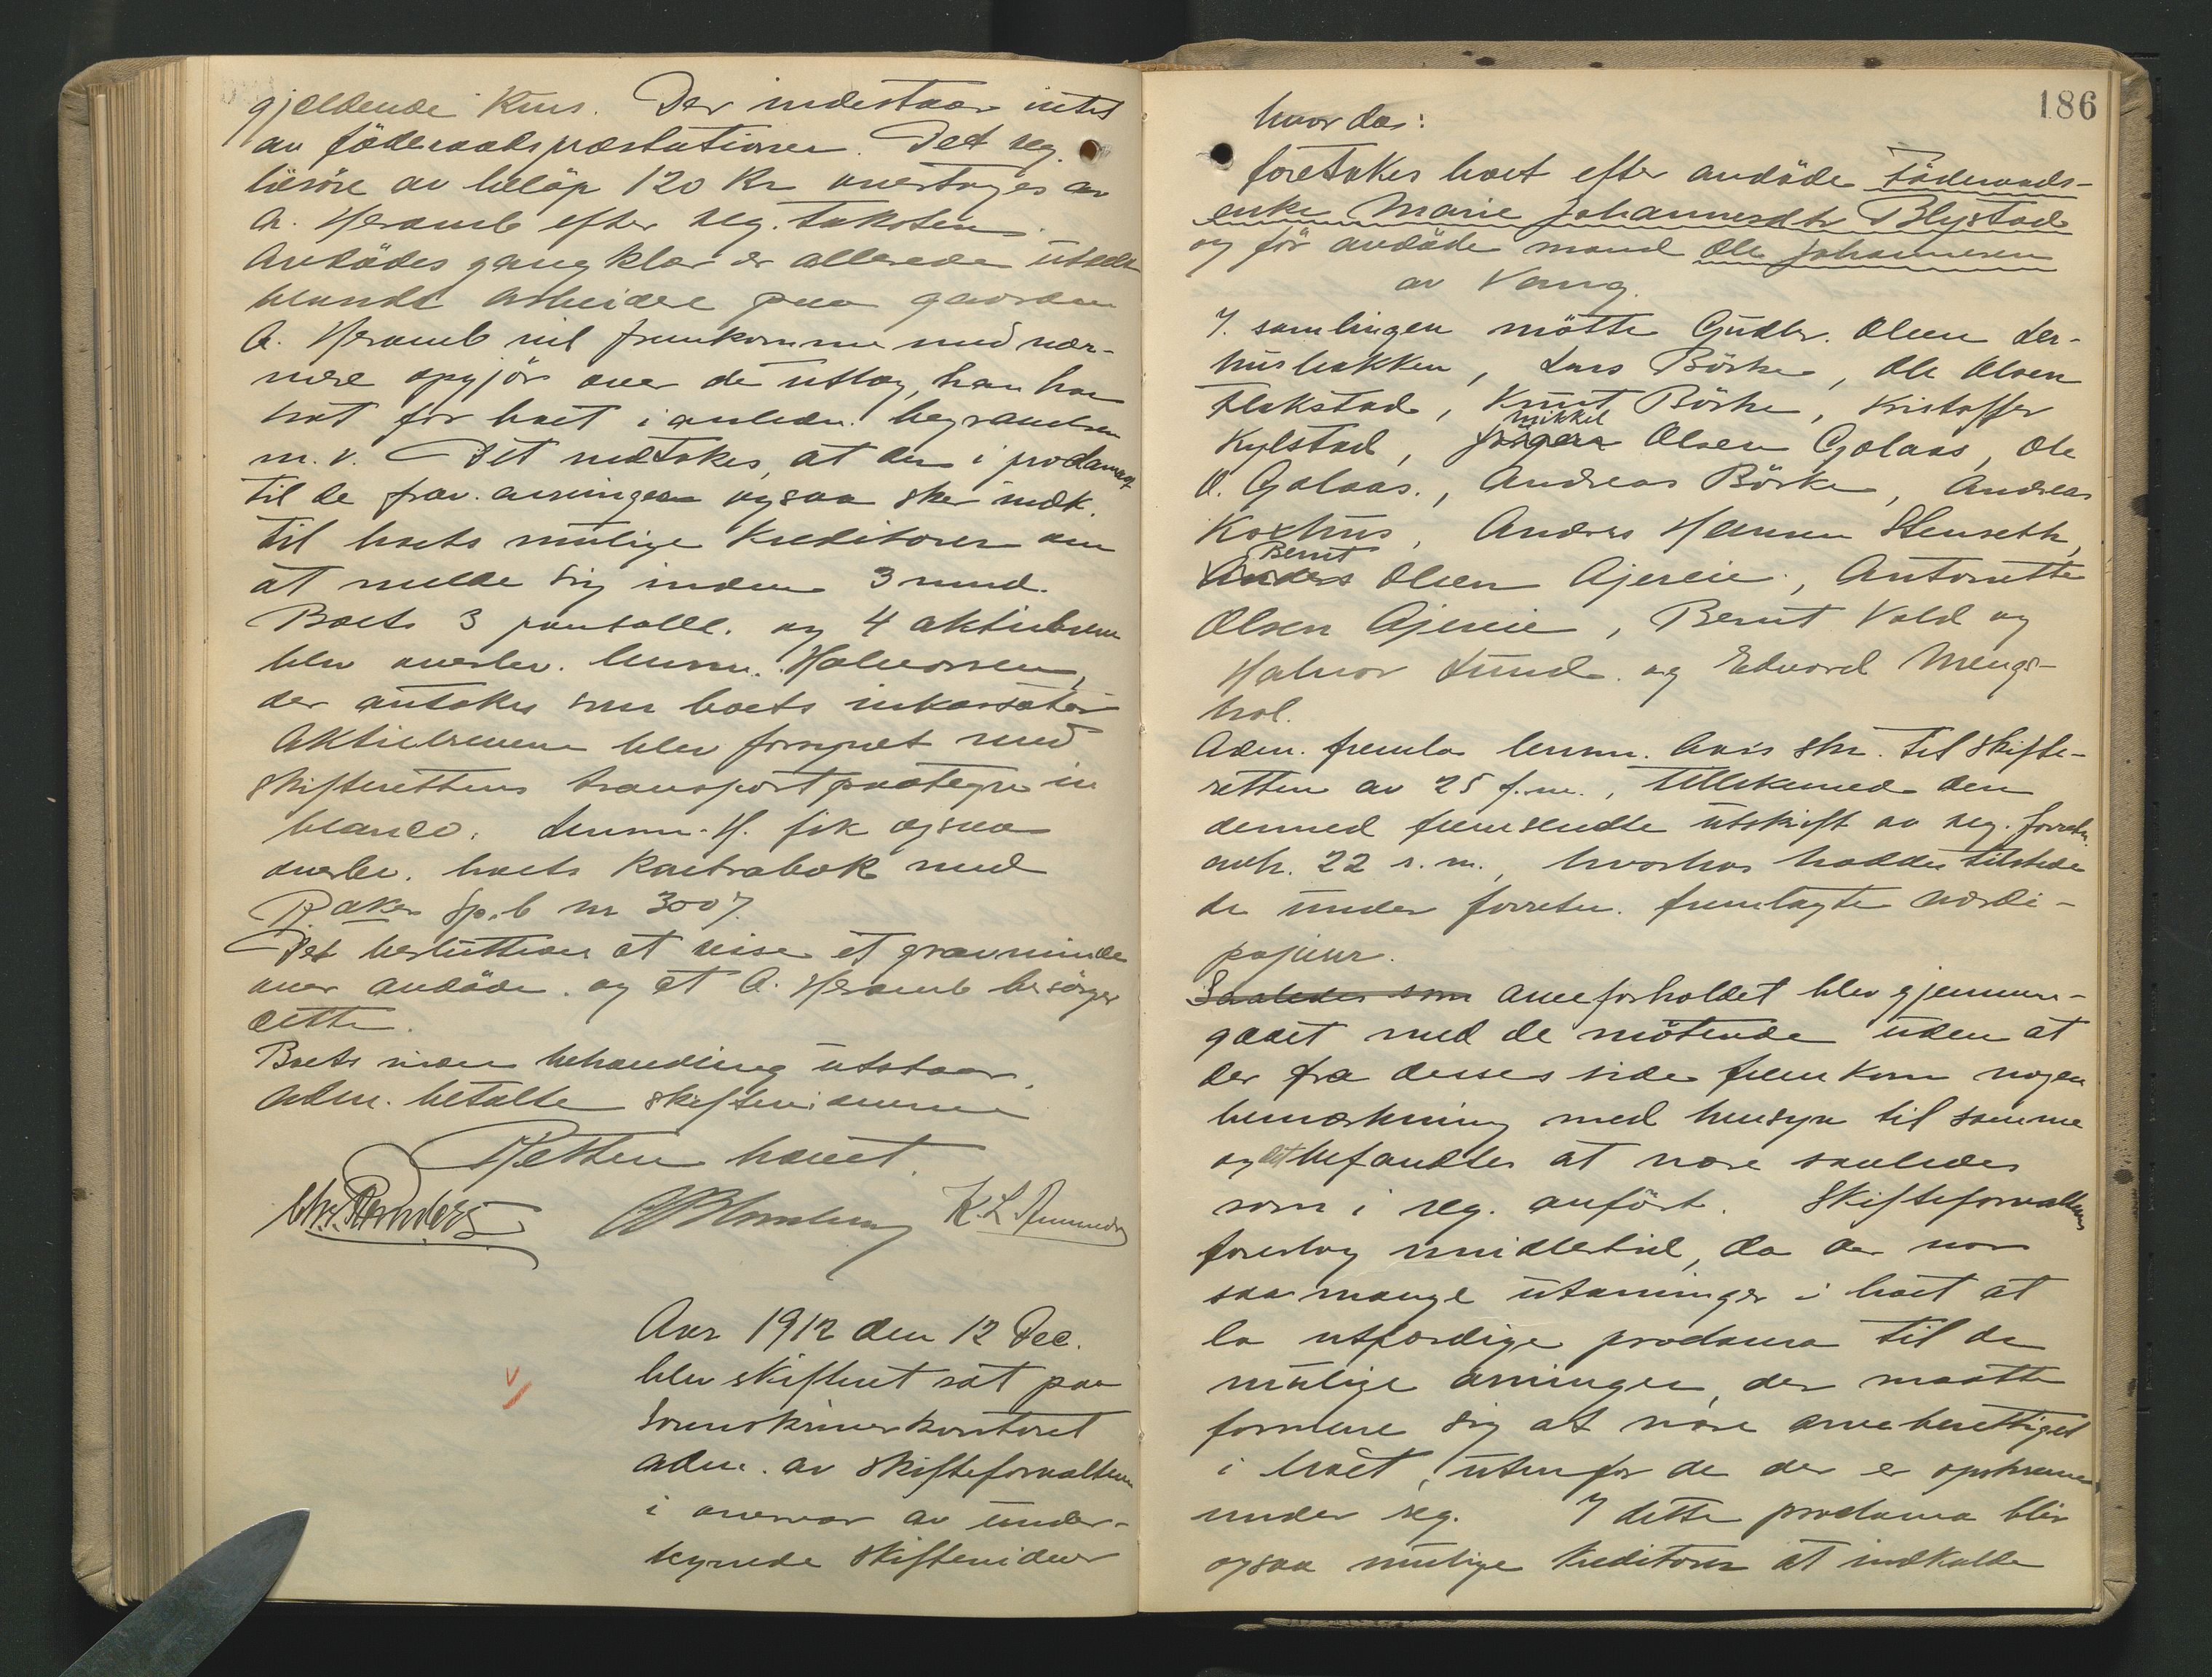 gjældende Kurs. Der indestaar intet
av föderaadspræstationer. Det reg.
lösöre av beløp 120 Kr overtages av
A. Heramb efter reg. taksten.
Avdödes gangklær er allerede utdelt
blandt arbeidere paa gaarden
A. Heramb vil fremkomme med nær-
mere opgjör over de utlæg, han har
hat for boet i anledn. begravelsen
m.v. Det vedtokes, at der i proclamaet
til de frav. arvinger ogsaa sker indk.
til boets mulige Kreditorer om
at melde sig inden 3 mnd.
Boets 3 pantobl. og 4 aktiebreve
blev overlev. lensm. Halvorsen,
der antokes som boets inkassator
Aktiebrevene blev forsynet med
skifterettens transportpaategn in
blanco. Lensm. H. fik ogsaa
overlev. boets Kontrabok med
Vaker Sp.b nr 3007.
Det besluttedes at reise et gravminde
over avdöde og at A. Heramb besörger
dette.
Boets videre behandling utstaar.
Adm. betalte skiftevidnerne
Retten hævet.
K. L. Amundr
Aar 1912 den 12 Dec.
blev skifteret sat paa
Sorenskriverkontoret
adm. av skifteforvalteren
i overvær av under-
tegnede skiftevidner
186
hvor da:
foretokes boet efter avdöde Föderaads-
enke Marie Johannesdtr Blystad
og för avdöde mand Ole Johannesen
av Vang.
I. samlingen mötte Gudbr. Olsen Ler-
husbakken, Lars Börke, Ole Olsen
Flakstad, Knut Börke, Kristoffer
Kylstad, Jörgen Mikkel Olsen Golaas, Ole
O. Golaas., Andreas Börke, Andreas
Koxhus, Anders Hansen Stenseth,
Anders Bernt Olsen Ajereie., Antonette
Olsen Ajereie, Bernt Vold og
Halvor Lund og Edvard Mengs-
hol.
Adm. fremla lensm. Aas's skr. til skifte-
retten av 25 f.m., tillikemed den
dermed fremsendte utskrift av reg. forretn.
avh. 22 s.m., hvorhos hadde tilstede
de under forretn. fremlagte værdi-
papirer.
Saaledes som Arveforholdet blev gjennem-
gaaet med de mötende uden at
der fra disses side fremkom nogen
bemærkning med hensyn til samme
og det befandtes at være saaledes
som i reg. anfört. Skifteforvalteren
foreslog imidlertid, da der var
saa mange utarvinger i boet at
la utfærdige proclama til de
mulige arvinger, der maatte
formene sig at være arveberettiget
i boet, utenfor de der er opskrevne
under reg. I dette proclama blir
ogsaa mulige kreditorer at indkalde